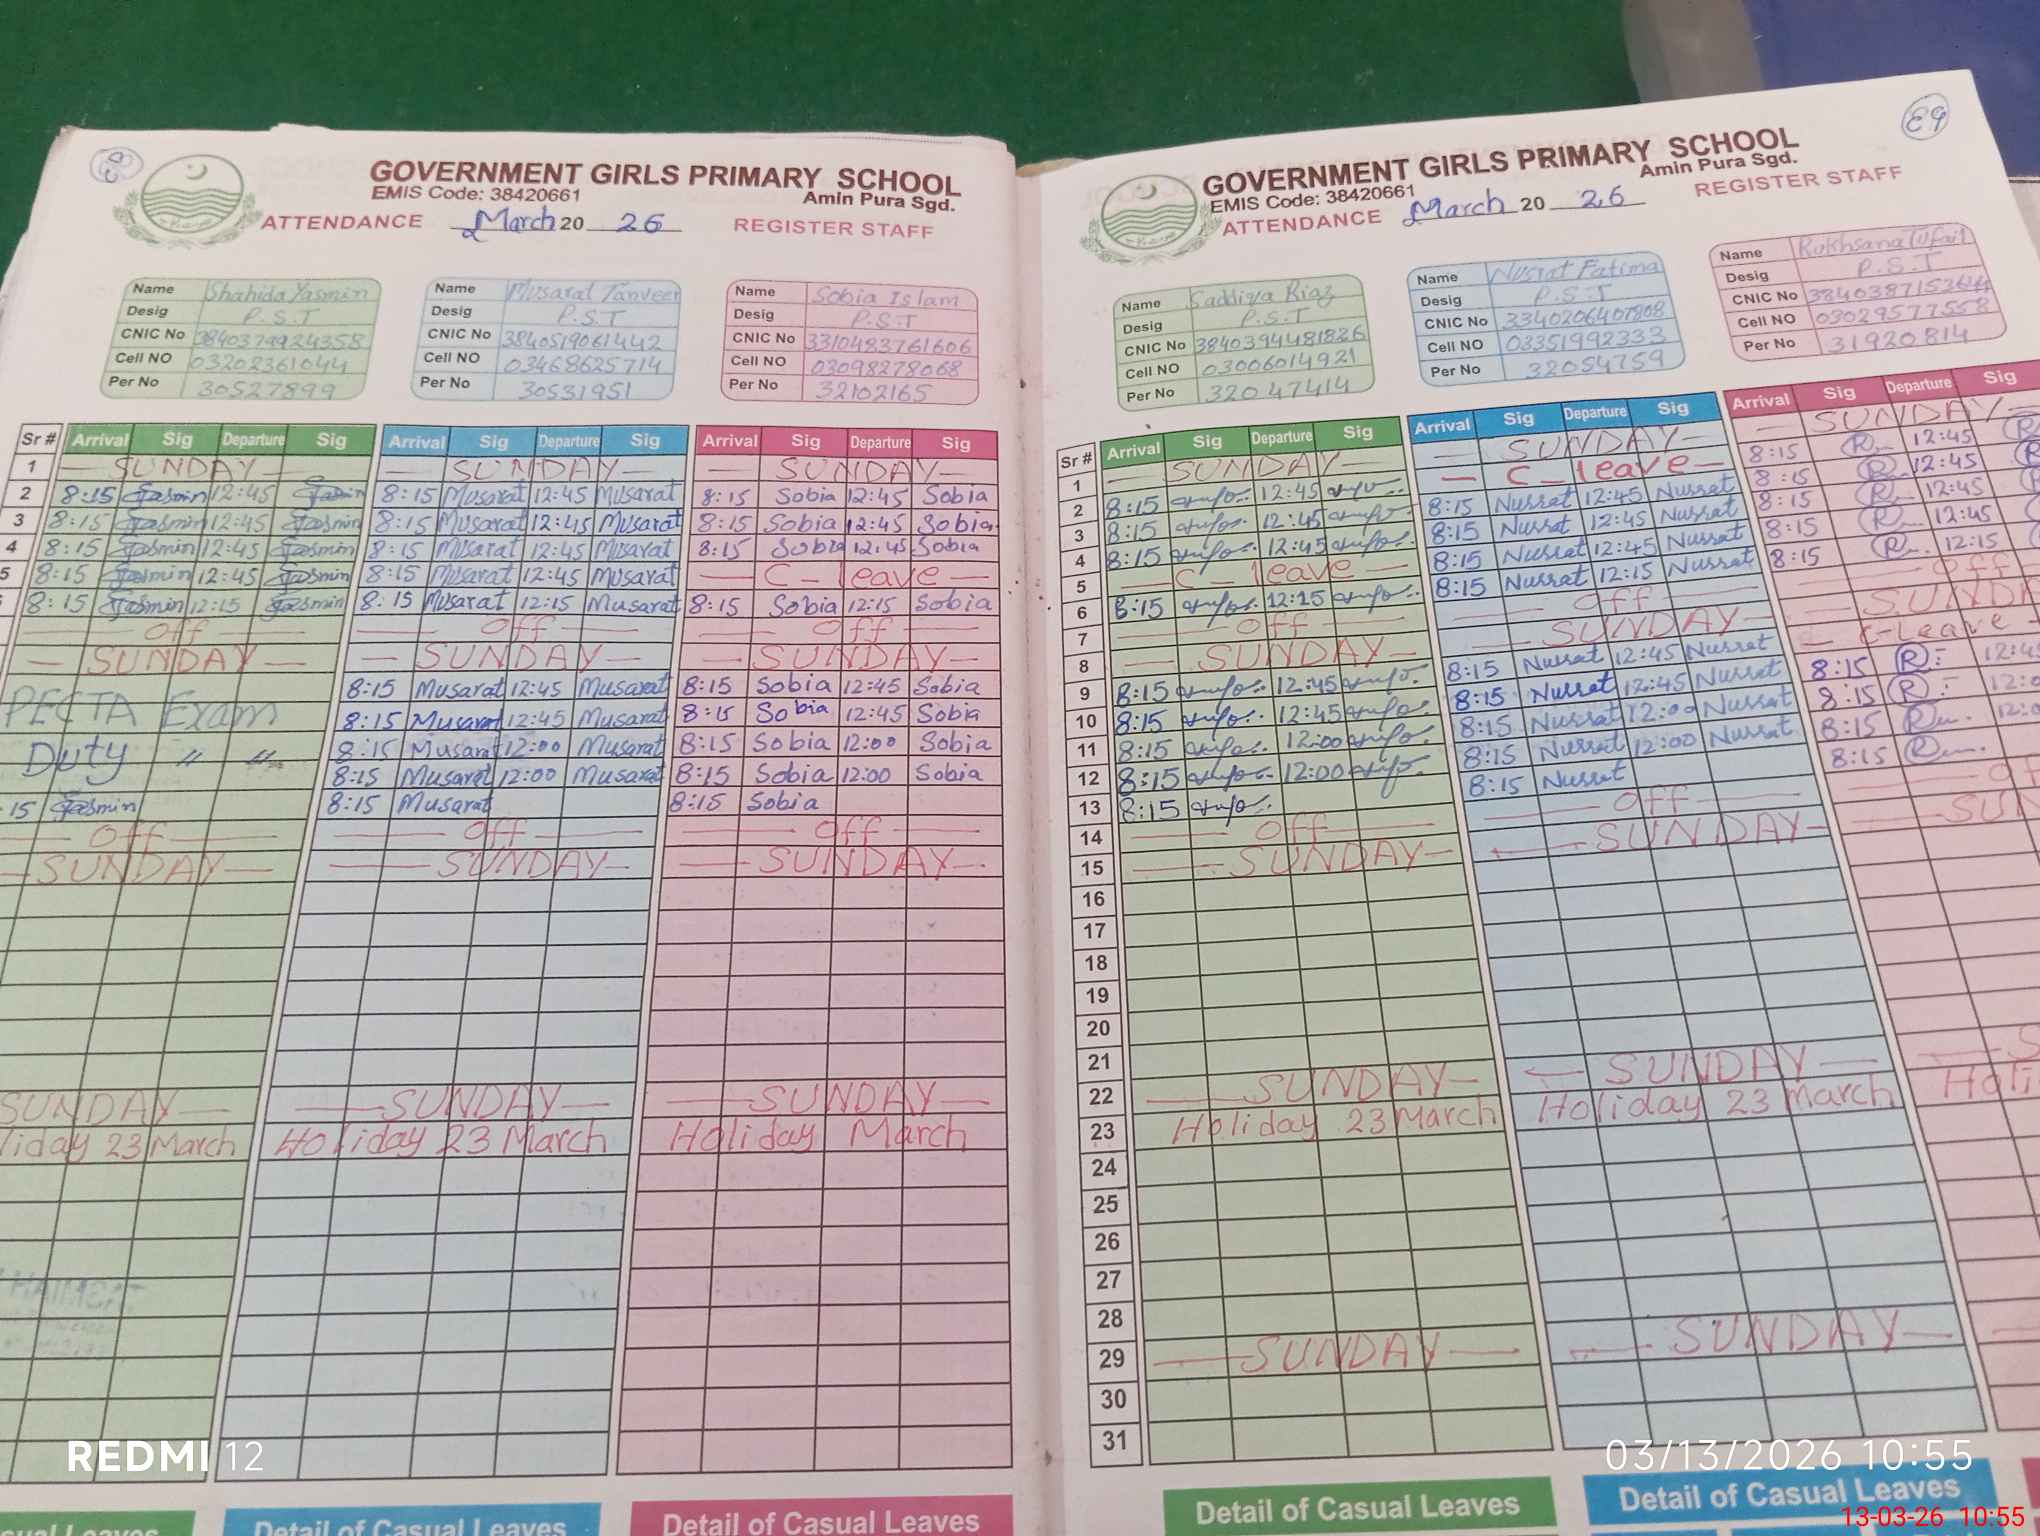 GOVERNMENT GIRLS PRIMARY SCHOOL
EMIS Code: 38420661
Amin Pura Sgd.
ATTENDANCE March 20 26 REGISTER STAFF
Name Shahida Yasmin
Desig P.S.T
CNIC No 3840379924358
Cell NO 03202361044
Per No 30527899
Name Musarat Tanveer
Desig P.S.T
CNIC No 3840519061442
Cell NO 03468625714
Per No 30531951
Name Sobia Islam
Desig P.S.T
CNIC No 3310483761606
Cell NO 03098278068
Per No 32102165
Sr # Arrival Sig Departure Sig Arrival Sig Departure Sig Arrival Sig Departure Sig
1 SUNDAY SUNDAY SUNDAY
2 8:15 Jasmin 12:45 Jasmin 8:15 Musarat 12:45 Musarat 8:15 Sobia 12:45 Sobia
3 8:15 Jasmin 12:45 Jasmin 8:15 Musarat 12:45 Musarat 8:15 Sobia 12:45 Sobia
4 8:15 Jasmin 12:45 Jasmin 8:15 Musarat 12:45 Musarat 8:15 Sobia 12:45 Sobia
5 8:15 Jasmin 12:45 Jasmin 8:15 Musarat 12:45 Musarat C-leave
8:15 Jasmin 12:15 Jasmin 8:15 Musarat 12:15 Musarat 8:15 Sobia 12:15 Sobia
Off Off Off
SUNDAY SUNDAY SUNDAY
8:15 Musarat 12:45 Musarat 8:15 Sobia 12:45 Sobia
PECTA Exam 8:15 Musarat 12:45 Musarat 8:15 Sobia 12:45 Sobia
Duty " " 8:15 Musarat 12:00 Musarat 8:15 Sobia 12:00 Sobia
8:15 Musarat 12:00 Musarat 8:15 Sobia 12:00 Sobia
15 Jasmin 8:15 Musarat 8:15 Sobia
Off Off Off
SUNDAY SUNDAY SUNDAY
SUNDAY SUNDAY SUNDAY
liday 23 March Holiday 23 March Holiday March
Leaves Detail of Casual Leaves Detail of Casual Leaves
89
GOVERNMENT GIRLS PRIMARY SCHOOL
EMIS Code: 38420661
Amin Pura Sgd.
ATTENDANCE March 20 26 REGISTER STAFF
Name Saddiya Riaz
Desig P.S.T
CNIC No 3840394481826
Cell NO 03006014921
Per No 32047414
Name Nusrat Fatima
Desig P.S.T
CNIC No 3340206407808
Cell NO 03351992333
Per No 32054759
Name Rukhsana Tufail
Desig P.S.T
CNIC No
Cell NO 03029577558
Per No 31920814
Sr # Arrival Sig Departure Sig Arrival Sig Departure Sig Arrival Sig Departure Sig
1 SUNDAY SUNDAY SUNDAY
2 8:15 12:45 C-leave 8:15 R 12:45
3 8:15 12:45 8:15 Nusrat 12:45 Nusrat 8:15 R 12:45
4 8:15 12:45 8:15 Nusrat 12:45 Nusrat 8:15 R 12:45
5 C-leave 8:15 Nusrat 12:45 Nusrat 8:15 R 12:45
6 8:15 12:15 8:15 Nusrat 12:15 Nusrat 8:15 R 12:15
7 Off Off Off
8 SUNDAY SUNDAY SUNDA
9 8:15 12:45 8:15 Nusrat 12:45 Nusrat C-Leave
10 8:15 12:45 8:15 Nusrat 12:45 Nusrat 8:15 R 12:4
11 8:15 12:00 8:15 Nusrat 12:00 Nusrat 8:15 R 12:0
12 8:15 12:00 8:15 Nusrat 12:00 Nusrat 8:15 R 12:0
13 8:15 8:15 Nusrat 8:15 R
14 Off Off Of
15 SUNDAY SUNDAY SUN
16
17
18
19
20
21
22 SUNDAY SUNDAY S
23 Holiday 23 March Holiday 23 March Holi
24
25
26
27
28
29 SUNDAY SUNDAY
30
31
Detail of Casual Leaves Detail of Casual Leaves
REDMI 12
03/13/2026 10:55
13-03-26 10:55